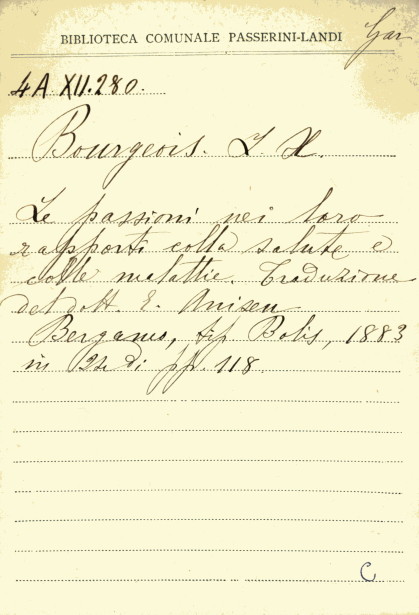 BIBLIOTECA COMUNALE PASSERINI-LANDI Gar
4A XII.280.
Bourgeois. L. X.
Le passioni nei loro
rapporti colla salute e
colle malattie. Traduzione
del dott. E.
Bergamo, tip Bolis, 1883
in 24 di pp. 118
C